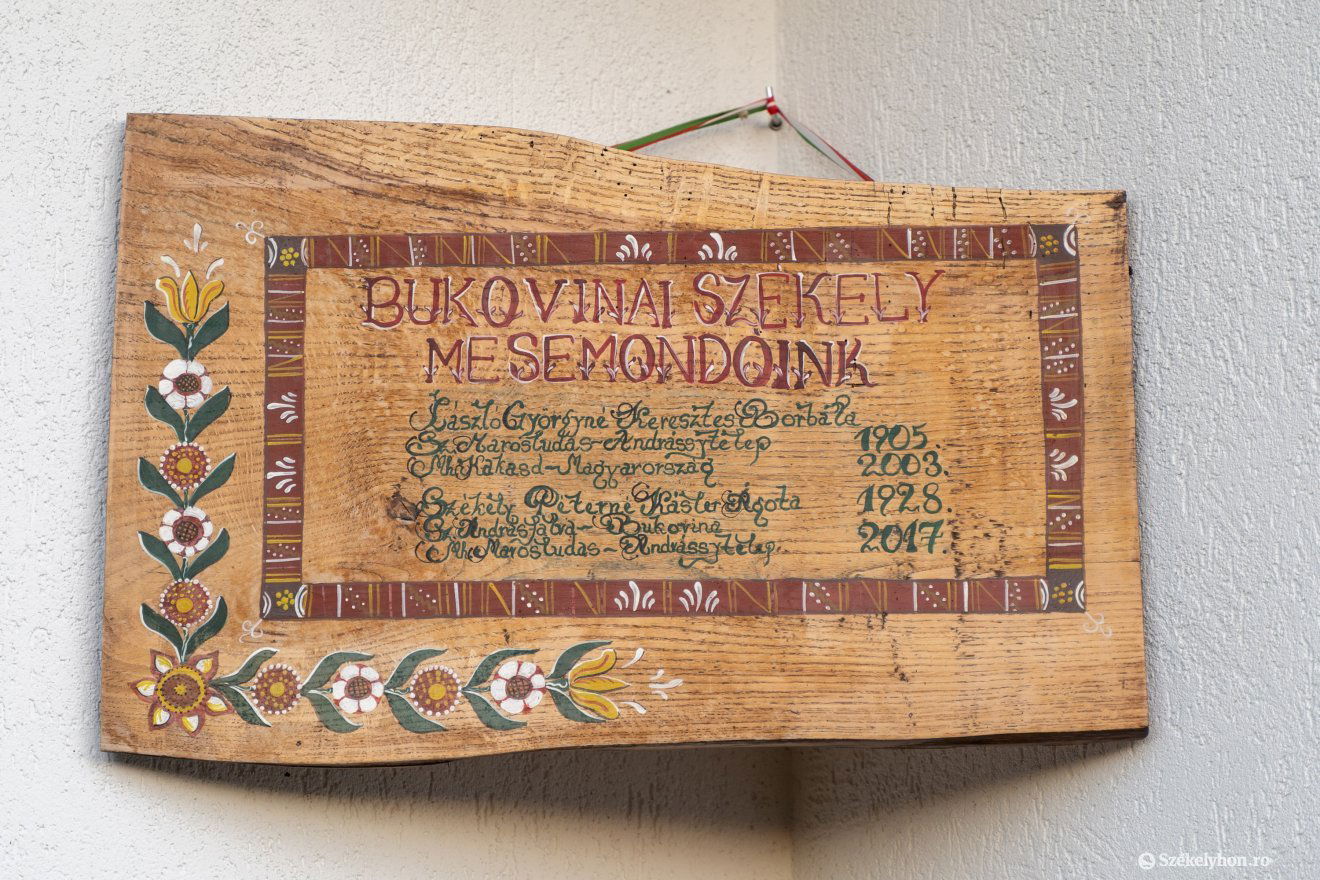 BUKOVINAI SZÉKELY
MESEMONDÓINK
László Györgyné Keresztes Borbála
Sz. Marosludas-Andrássytelep 1905.
Mh. Kakasd-Magyarország 2003.
Székely Péterné Kásler Ágota 1928.
Sz. Andrásfalva-Bukovina
Mh. Marosludas-Andrássytelep. 2017.
Székelyhon.ro